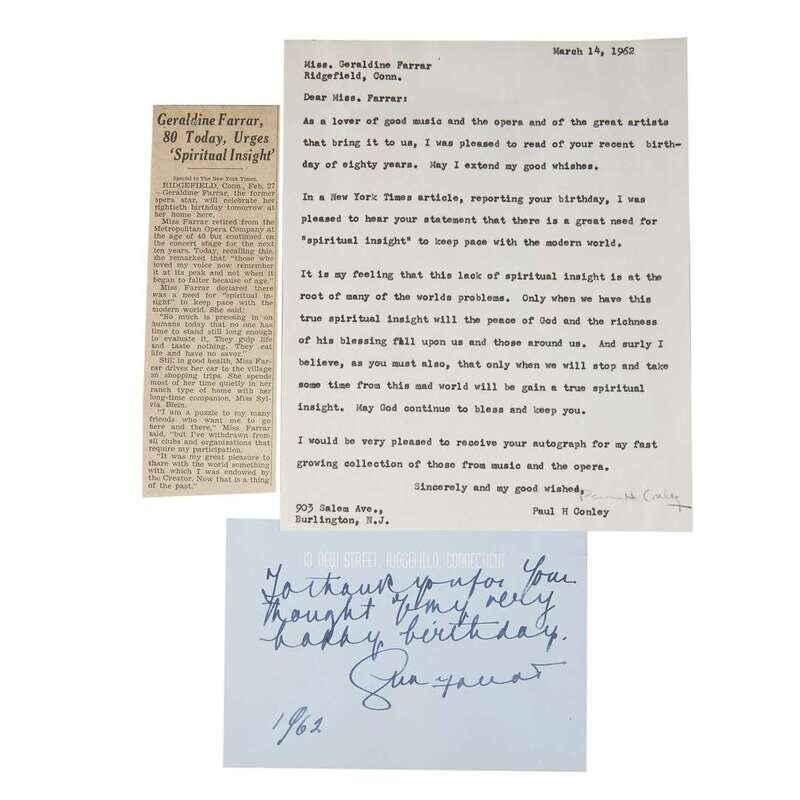 Geraldine Farrar,
80 Today, Urges
'Spiritual Insight'
Special to The New York Times.
RIDGEFIELD, Conn., Feb. 27
—Geraldine Farrar, the former
opera star, will celebrate her
eightieth birthday tomorrow at
her home here.
Miss Farrar retired from the
Metropolitan Opera Company at
the age of 40 but continued on
the concert stage for the next
ten years. Today, recalling this,
she remarked that "those who
loved my voice now remember
it at its peak and not when it
began to falter because of age."
Miss Farrar declared there
was a need for "spiritual in-
sight" to keep pace with the
modern world. She said:
"So much is pressing in on
humans today that no one has
time to stand still long enough
to evaluate it. They gulp life
and taste nothing. They eat
life and have no savor."
Still in good health, Miss Far-
rar drives her car to the village
on shopping trips. She spends
most of her time quietly in her
ranch type of home with her
long-time companion, Miss Syl-
via Blein.
"I am a puzzle to my many
friends who want me to go
here and there," Miss Farrar
said, "but I've withdrawn from
all clubs and organizations that
require my participation.
"It was my great pleasure to
share with the world something
with which I was endowed by
the Creator. Now that is a thing
of the past."
March 14, 1962
Miss. Geraldine Farrar
Ridgefield, Conn.
Dear Miss. Farrar:
As a lover of good music and the opera and of the great artists
that bring it to us, I was pleased to read of your recent birth-
day of eighty years. May I extend my good whishes.
In a New York Times article, reporting your birthday, I was
pleased to hear your statement that there is a great need for
"spiritual insight" to keep pace with the modern world.
It is my feeling that this lack of spiritual insight is at the
root of many of the worlds problems. Only when we have this
true spiritual insight will the peace of God and the richness
of his blessing fall upon us and those around us. And surly I
believe, as you must also, that only when we will stop and take
some time from this mad world will be gain a true spiritual
insight. May God continue to bless and keep you.
I would be very pleased to receive your autograph for my fast
growing collection of those from music and the opera.
Sincerely and my good wished,
Paul H Conley
903 Salem Ave.,
Burlington, N.J.
Paul H Conley
10 NEW STREET, RIDGEFIELD, CONNECTICUT
To thank you for your
thought of my very
happy birthday.
Farrar
1962